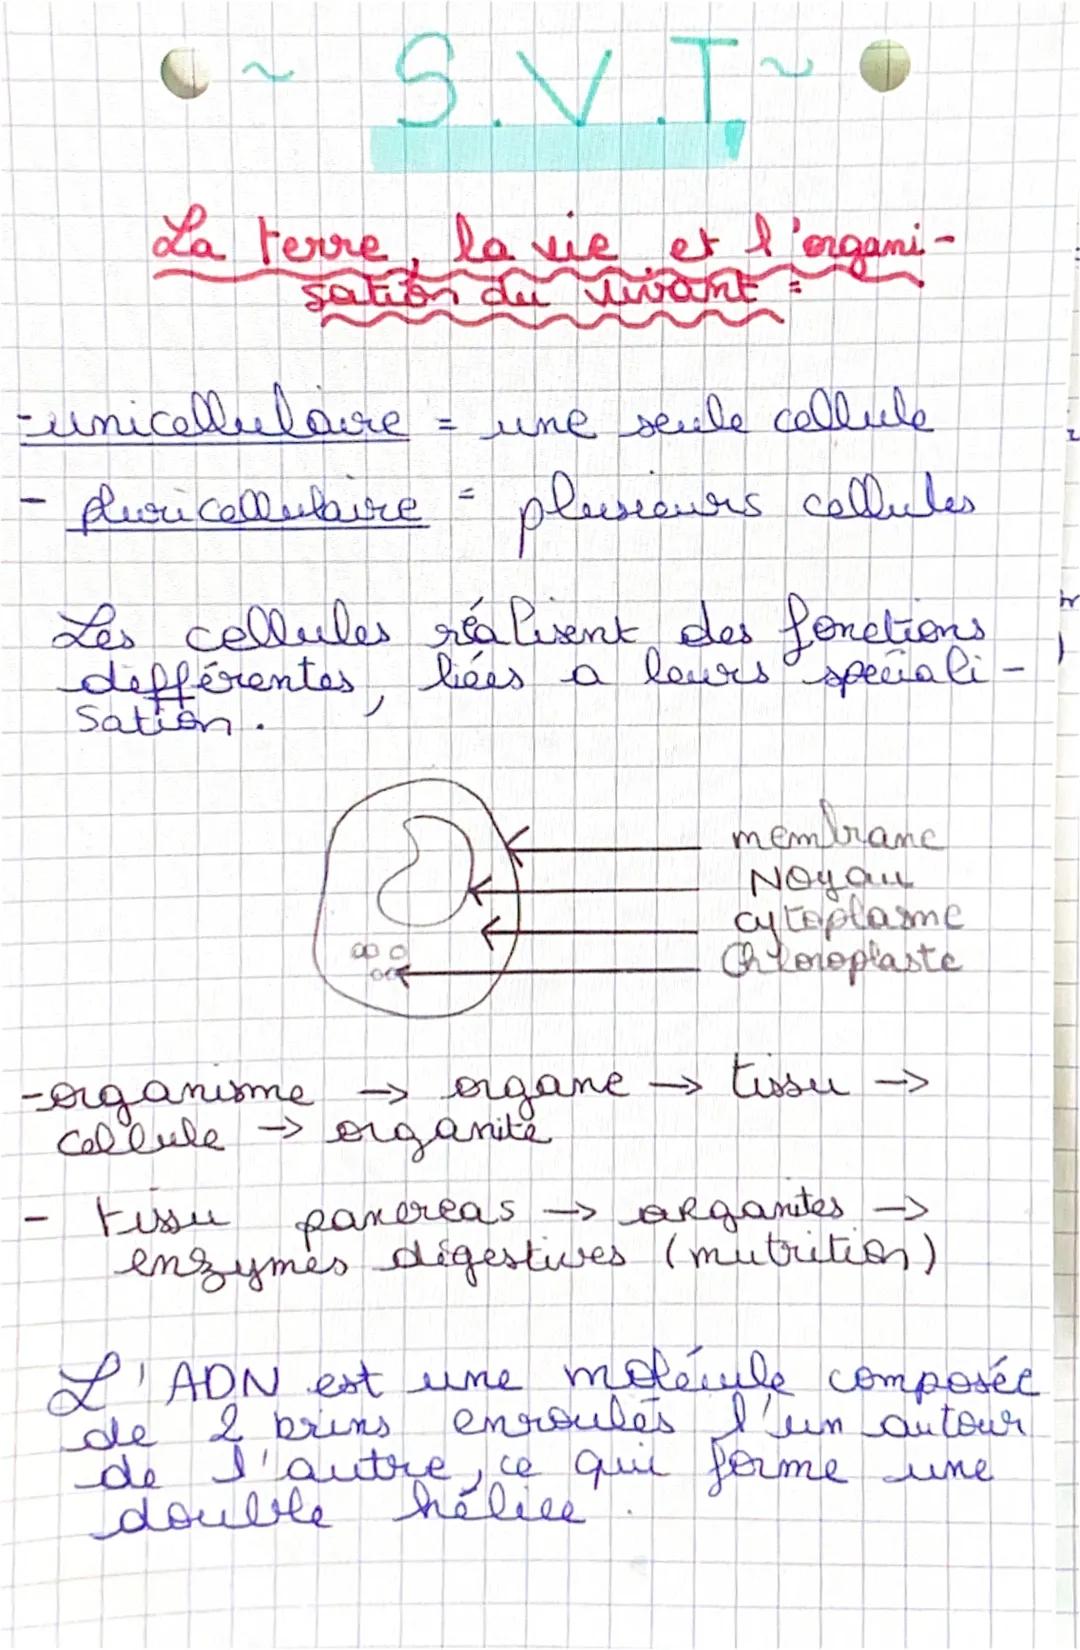 ~ S.V.T ~
La terre, la vie et l'organi-
sation du vivant =
- unicellulaire = une seule cellule
- pluricellulaire = plusieurs cellules
Les cellules réalisent des fonctions
différentes, liées a leurs spéciali-
sation.
membrane
Noyau
cytoplasme
Chloroplaste
- organisme → organe → tissu →
cellule → organite
- tissu pancreas → organites →
enzymes digestives (nutrition)
L'ADN est une molécule composée
de 2 brins enroulés l'un autour
de l'autre, ce qui forme une
double hélice.